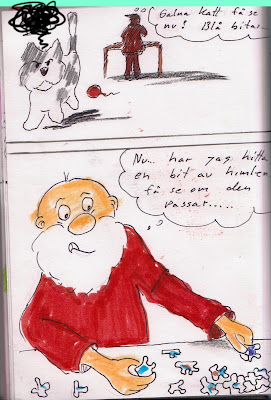 Galna Katt få se
nu! Blå bitar
Nu... har jag hitta
en bit av himlen
få se om den
passar.....